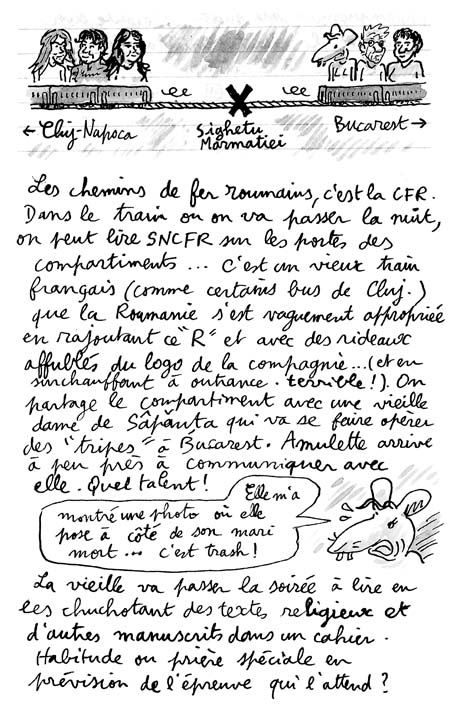 ee ee
← Cluj-Napoca Sighetu Bucarest →
Marmatiei
Les chemins de fer roumains, c'est la CFR.
Dans le train où on va passer la nuit,
on peut lire SNCFR sur les portes des
compartiments ... C'est un vieux train
français (comme certains bus de Cluj.)
que la Roumanie s'est vaguement appropriée
en rajoutant ce "R" et avec des rideaux
affublés du logo de la compagnie...(et en
surchauffant à outrance. terrible!). On
partage le compartiment avec une vieille
dame de Săpânta qui va se faire opérer
des "tripes" à Bucarest. Amulette arrive
à peu près à communiquer avec
elle. Quel talent!
Elle m'a
montré une photo où elle
pose à côté de son mari
mort... c'est trash!
La vieille va passer la soirée à lire en
les chuchotant des textes religieux et
d'autres manuscrits dans un cahier.
Habitude ou prière spéciale en
prévision de l'épreuve qui l'attend?